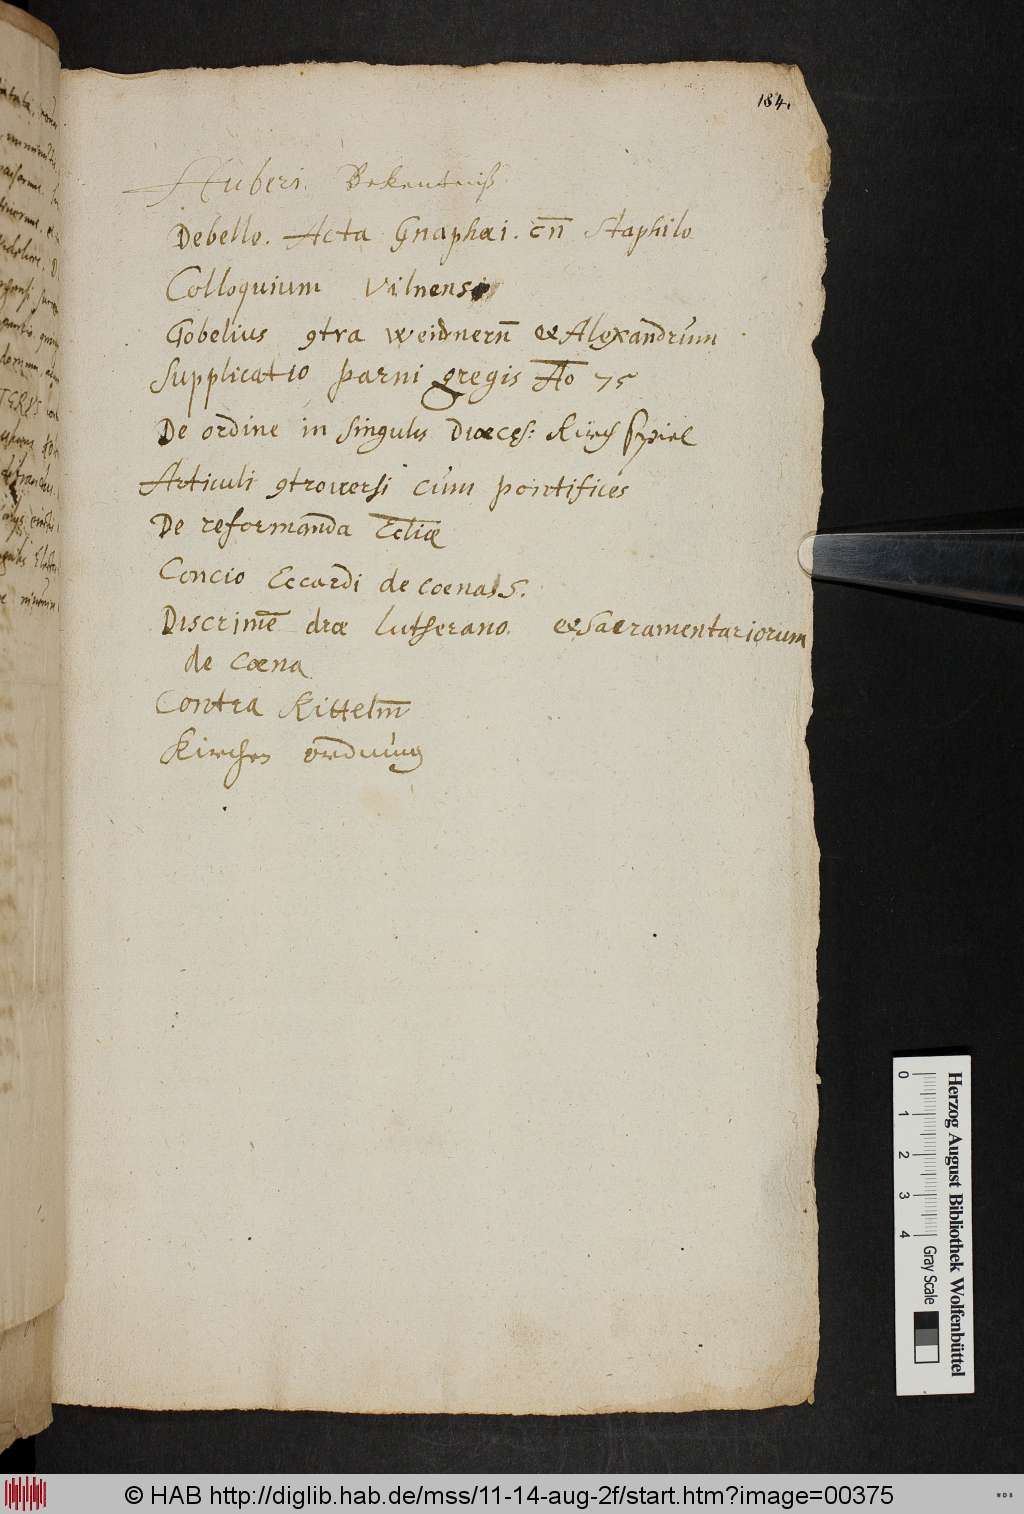 184.
Huberi. Bekentniß
De bello. Acta Gnaphæi. cn̄ Staphilo
Colloquium Vilnense
Gobelius 9tra Weidnern̄ et Alexandrum
Supplicatio parui gregis Ao 75
De ordine in singulis Diœces: Kirchspiel
Articuli 9trouersi cum pontifices
De reformanda Ecliæ
Concio Eccardi de coena S.
Discrimē dræ Lutherano. et Sacramentariorum
de Cœna
Contra Kittelm̄
Kirchen ordnung
Herzog August Bibliothek Wolfenbüttel
0 1 2 3 4 Gray Scale
© HAB http://diglib.hab.de/mss/11-14-aug-2f/start.htm?image=00375